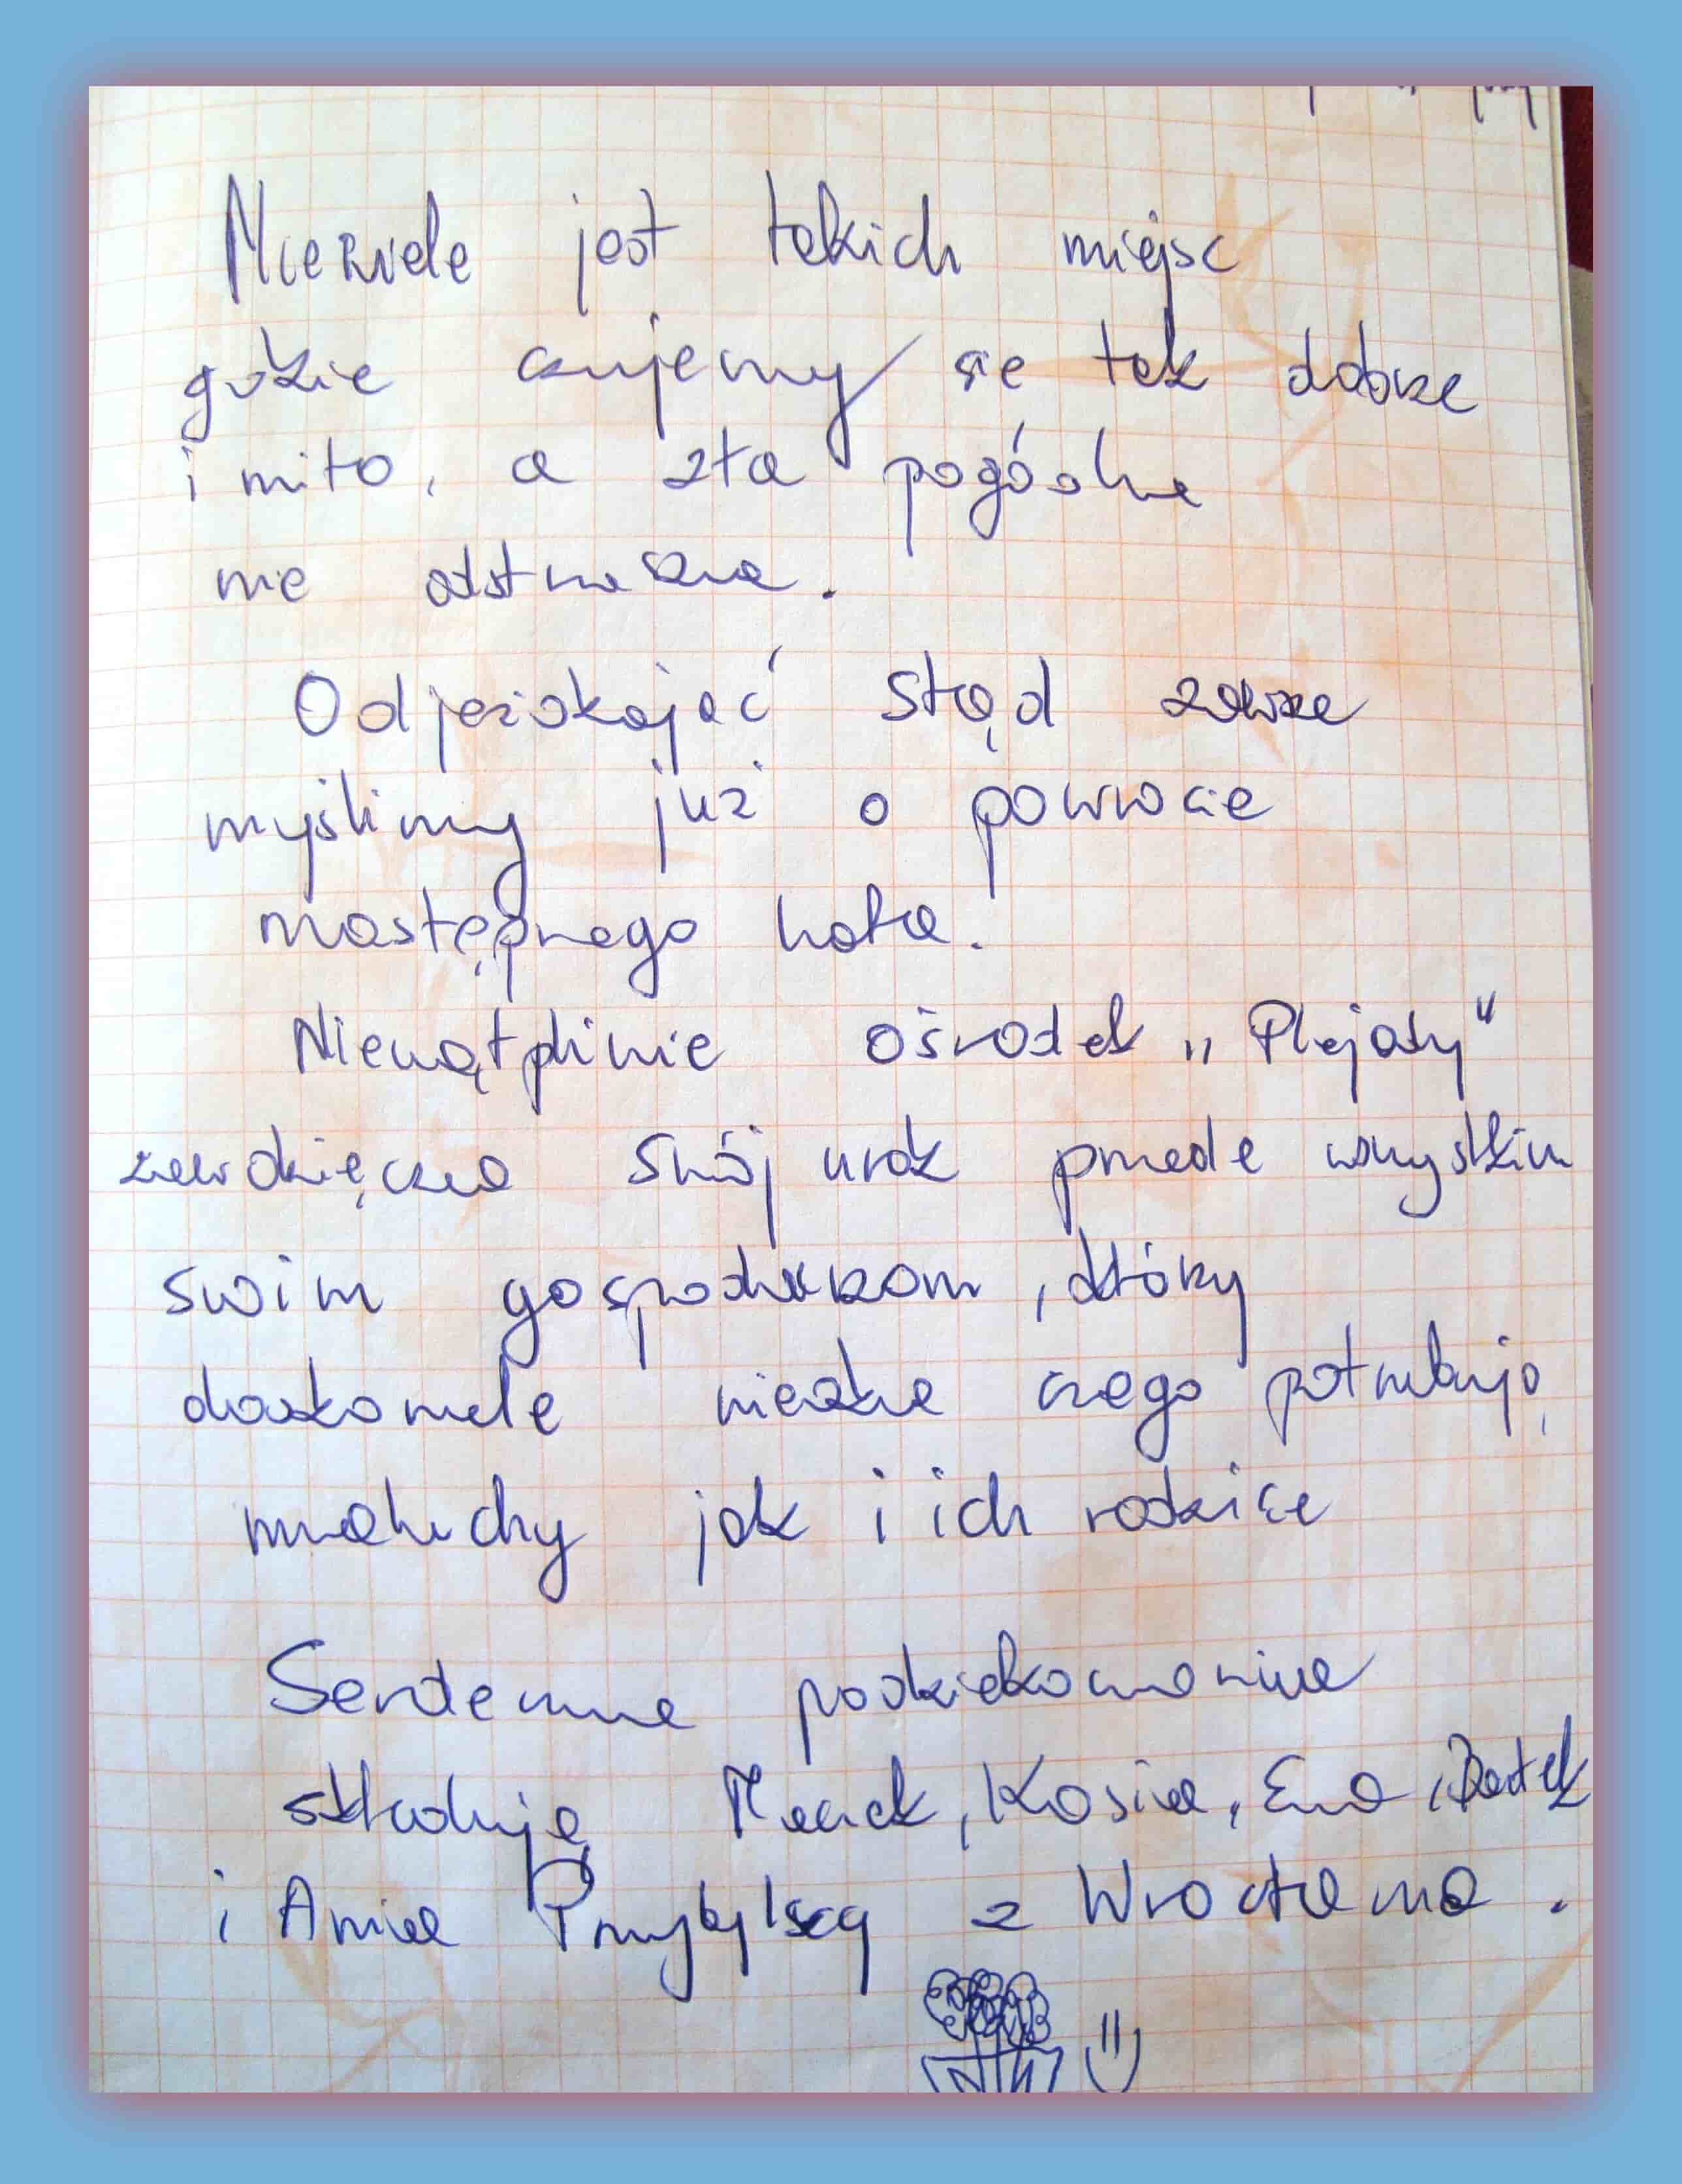 Niewiele jest takich miejsc
gdzie czujemy się tak dobrze
i miło, a zła pogódka
nie odstrasza.
Odjeżdżająć stąd zawsze
myślimy już o powrocie
następnego lata.
Niewątpliwie ośrodek „Plejady"
zawdzięcza swój urok przede wszystkim
swoim gospodarzom, którzy
doskonale wiedzą czego potrzebują
maluchy jak i ich rodzice
Serdeczne podziękowania
składają Maciek, Kasia, Ewa, Bartek
i Ania Przybylscy z Wrocławia.